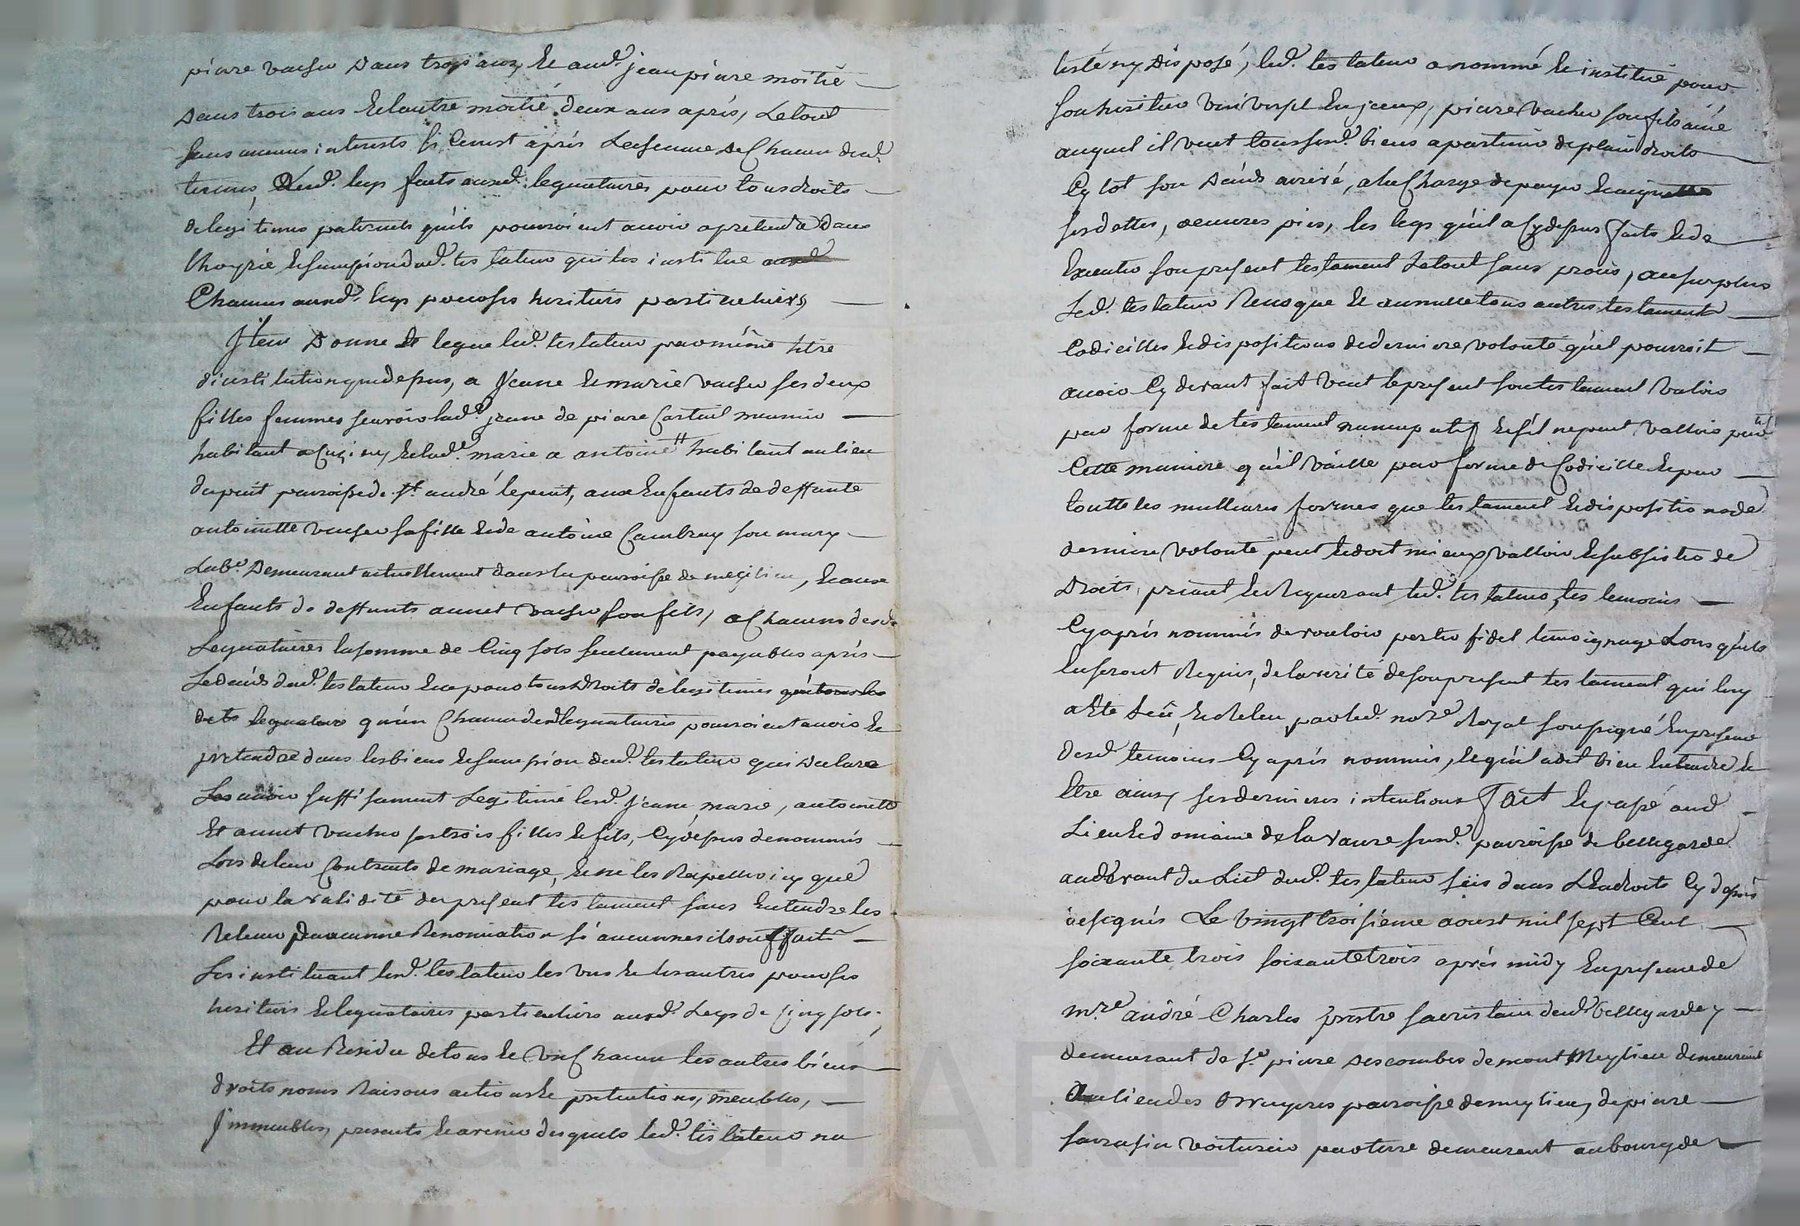 pierre vacher dans trois ans, et aud. jean pierre moitié
dans trois ans et lautre moitié deux ans aprés, le tout
sans aucuns interests si ce nest aprés lescheance de chacun desd.
termes, lesd. legs faits ausd. legataires pour tous droits
de legitimes paternels quils pourroient avoir a pretendre dans
lhoyrie et succession dud. testateur qui les institue
chacuns ausd. legs pour ses heritiers particuliers
Item donne et legue led. testateur par même titre
dinstitution que dessus, a jeanne et marie vacher ses deux
filles femmes scavoir lad. jeanne de pierre
habitant a et lad. marie a antoine habitant au lieu
du puit parroisse de st. andré le puit, aux enfants de deffunte
antoinette vacher sa fille et de antoine son mary
lab. demeurant actuellement dans la parroisse de meylieu, et aux
enfants de deffunt annet vacher son fils, a chacuns desd.
legataires la somme de cinq sols seulement payables aprés
le decés dud. testateur et ce pour tous droits de legitimes
dets legataires qu'un chacun desd. legataires pourroient avoir et
pretendre dans les biens et succession dud. testateur qui declare
les avoir suffisament legitimé lesd. jeanne marie, antoinette
et annet vacher ses trois filles et fils, cy dessus denommés
lors de leur contracts de mariage, et ne les rapeller icy que
pour la validité du present testament sans entendre les
relever d'aucune renonciation si aucunnes ils ont fait
les instituant led. testateur les uns et les autres pour ses
heritiers et legataires particuliers ausd. legs de cinq sols.
Et au residu de tous et un chacun les autres biens
droits noms raisons actions et pretentions, meubles,
immeubles, presents et avenir desquels led. testateur na
testé ny disposé, led. testateur a nommé et institué pour
son heritier universel en iceux, pierre vacher son fils ainé
auquel il veut tous sesd. biens apartenir de plein droits
sytot son decés arrivé, a la charge de payer
ses dettes, oeuvres pies, les legs qu'il a cy dessus faits et de
executer son present testament le tout sans procés, au surplus
led. testateur revoque et annulle tous autres testaments
codicilles et dispositions de derniere volonté qu'il pourroit
avoir cy devant fait veut le present son testament valoir
par forme de testament nuncupatif et s'il ne peut valloir par
cette maniere qu'il vaille par forme de codicille et par
toutte les meilleures formes que testament et disposition de
derniere volonté peut et doit mieux valloir et subsister de
droits, priant et requerant led. testateur, les temoins
cy aprés nommés de vouloir porter fidel temoignage lors qu'ils
en seront requis, de la verité de son present testament qui luy
a eté leû, et releu par led. no.re royal soussigné en presence
desd. temoins cy aprés nommés, lequil a dit bien entendre et
etre ainsy ses dernieres intentions fait et passé aud.
lieu et domaine de la varre susd. parroisse de bellegarde
au devant du lict dud. testateur
Le vingt troisieme aoust mil sept cent
soixante trois soixante trois aprés midy en presence de
m.re andré Charles prestre sacristain dud. bellegarde,
demeurant de sr. pierre descombes de mont Meylieu demeurant
au lieu des parroisse de meylieu, de pierre
sarrasin voiturier par terre demeurant au bourg de